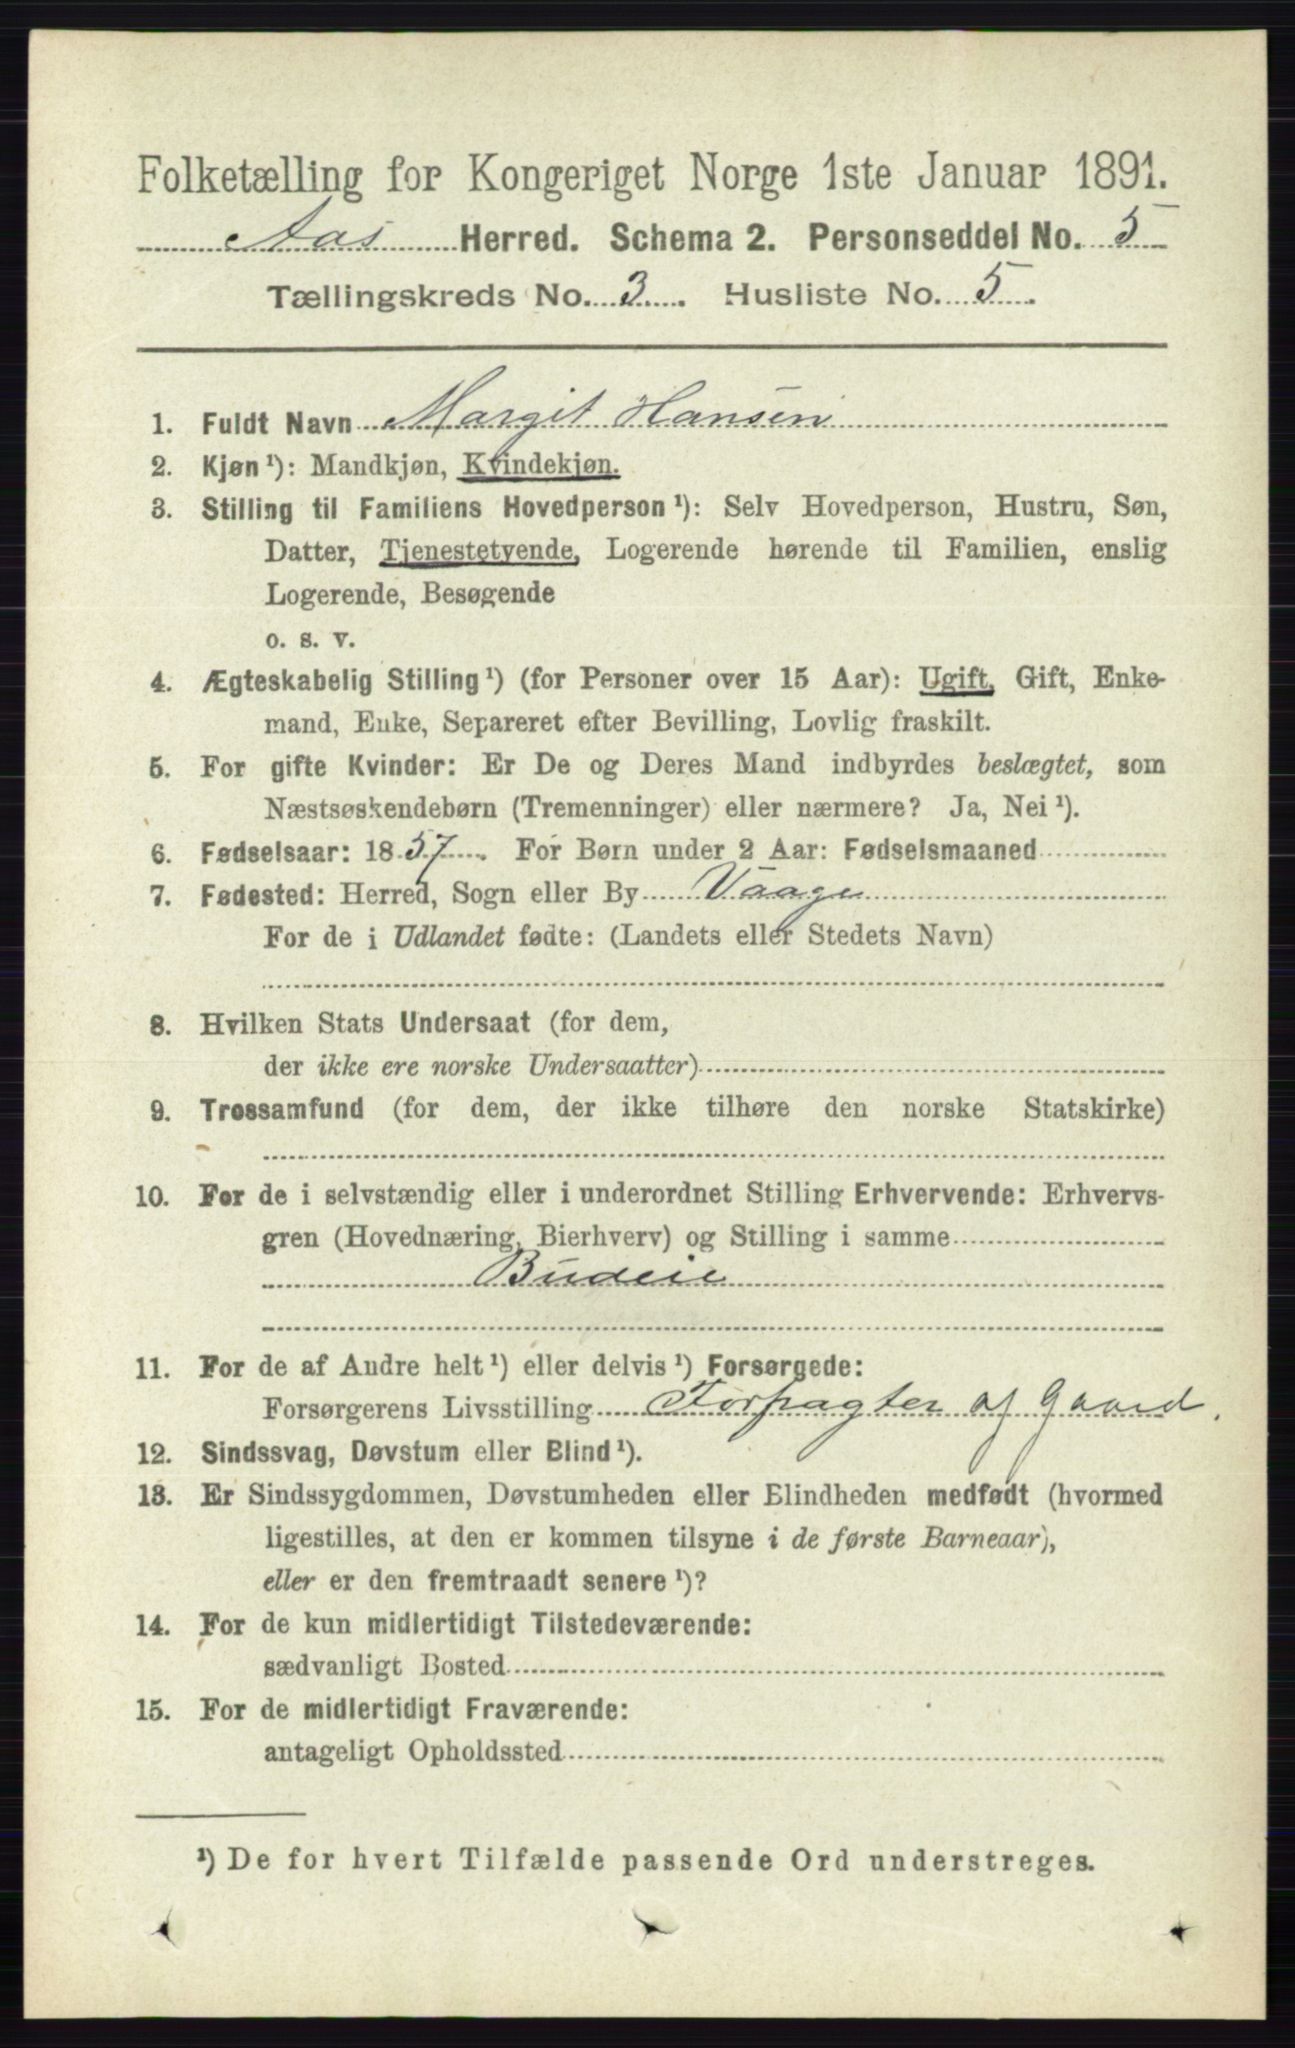 Folketælling for Kongeriget Norge 1ste Januar 1891.
Aas Herred. Schema 2. Personseddel No. 5
Tællingskreds No. 3. Husliste No. 5.
1. Fuldt Navn Margit Hansen
2. Kjøn¹): Mandkjøn, Kvindekjøn.
3. Stilling til Familiens Hovedperson¹): Selv Hovedperson, Hustru, Søn,
Datter, Tjenestetyende, Logerende hørende til Familien, enslig
Logerende, Besøgende
o. s. v.
4. Ægteskabelig Stilling¹) (for Personer over 15 Aar): Ugift, Gift, Enke-
mand, Enke, Separeret efter Bevilling, Lovlig fraskilt.
5. For gifte Kvinder: Er De og Deres Mand indbyrdes beslægtet, som
Næstsøskendebørn (Tremenninger) eller nærmere? Ja, Nei¹).
6. Fødselsaar: 1857. For Børn under 2 Aar: Fødselsmaaned
7. Fødested: Herred, Sogn eller By Vaage
For de i Udlandet fødte: (Landets eller Stedets Navn)
8. Hvilken Stats Undersaat (for dem,
der ikke ere norske Undersaatter)
9. Trossamfund (for dem, der ikke tilhøre den norske Statskirke)
10. For de i selvstændig eller i underordnet Stilling Erhvervende: Erhvervs-
gren (Hovednæring, Bierhverv) og Stilling i samme
Budeie
11. For de af Andre helt¹) eller delvis¹) Forsørgede:
Forsørgerens Livsstilling Forpagter af Gaard.
12. Sindssvag, Døvstum eller Blind¹).
13. Er Sindssygdommen, Døvstumheden eller Blindheden medfødt (hvormed
ligestilles, at den er kommen tilsyne i de første Barneaar),
eller er den fremtraadt senere¹)?
14. For de kun midlertidigt Tilstedeværende:
sædvanligt Bosted
15. For de midlertidigt Fraværende:
antageligt Opholdssted
¹) De for hvert Tilfælde passende Ord understreges.